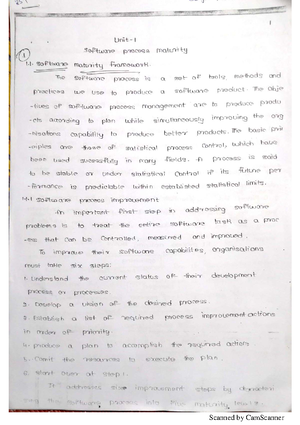 1
Unit-1
Software process maturity
1
1.1 Software Maturity Framework:
The software process is a set of tools, methods and
practices we use to produce a software product. The obje
-tives of software process management are to produce produ
cts according to plan while simultaneously improving the org
anisations capability to produce better products. The basic prin
ciples are those of statistical process control, which have
been used successfully in many fields. A process is said
to be stable or under statistical control if its future per
-formance is predictable within established statistical limits.
1.1.1 Software process improvement
An important first step in addressing software
problems is to treat the entire software task as a proc
-ess that can be controlled, measured and improved.
To improve their software capabilities, organisations
must take six steps:
1. Understand the current status of their development
process or processes.
2. Develop a vision of the desired process
3. Establish a list of required process improvement actions
in order of priority
4. produce a plan to accomplish the required actions
5. Commit the resources to execute the plan.
6. Start over at step 1.
It addresses six improvement steps by
the software process into five maturity levels
Scanned by CamScanner